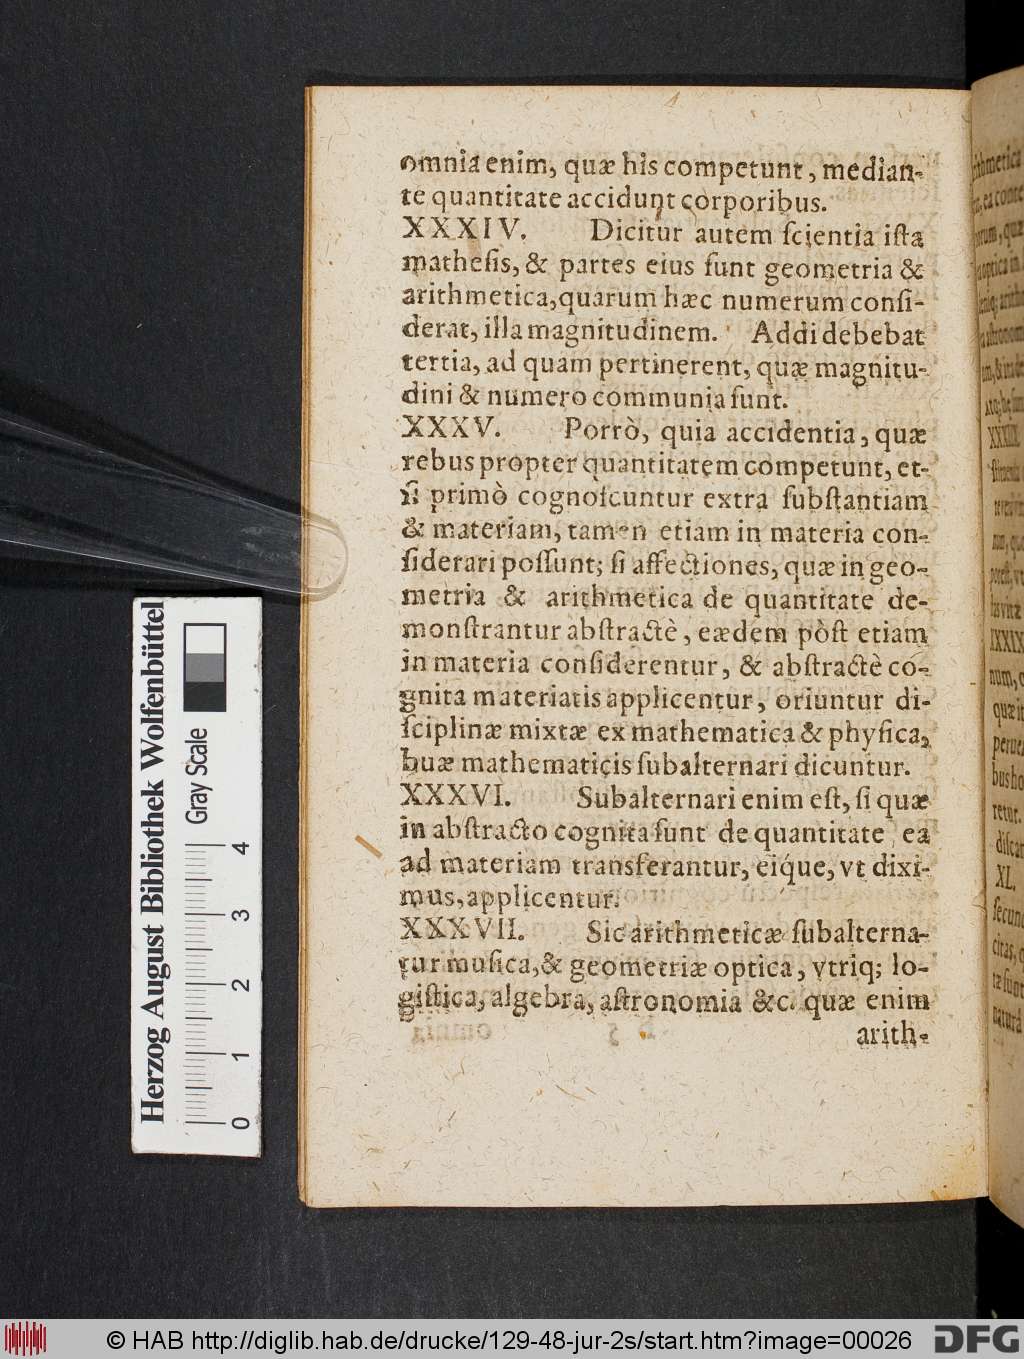 omnia enim, quæ his competunt, median-
te quantitate accidunt corporibus.
XXXIV. Dicitur autem ſcientia iſta
matheſis, & partes eius ſunt geometria &
arithmetica, quarum hæc numerum conſi-
derat, illa magnitudinem. Addi debebat
tertia, ad quam pertinerent, quæ magnitu-
dini & numero communia ſunt.
XXXV. Porrò, quia accidentia, quæ
rebus propter quantitatem competunt, et-
ſi primò cognoſcuntur extra ſubſtantiam
& materiam, tamen etiam in materia con-
ſiderari poſſunt; ſi affectiones, quæ in geo-
metria & arithmetica de quantitate de-
monſtrantur abſtractè, eædem pòſt etiam
in materia conſiderentur, & abſtractè co-
gnita materiatis applicentur, oriuntur di-
ſciplinæ mixtæ ex mathematica & phyſica,
huæ mathematicis ſubalternari dicuntur.
XXXVI. Subalternari enim eſt, ſi quæ
in abſtracto cognita ſunt de quantitate, ea
ad materiam transferantur, eiq́ue, vt dixi-
mus, applicentur.
XXXVII. Sic arithmeticæ ſubalterna-
tur muſica, & geometriæ optica, vtriq; lo-
giſtica, algebra, aſtronomia &c. quæ enim
arith-
Herzog August Bibliothek Wolfenbüttel
Gray Scale
0 1 2 3 4
© HAB http://diglib.hab.de/drucke/129-48-jur-2s/start.htm?image=00026
DFG